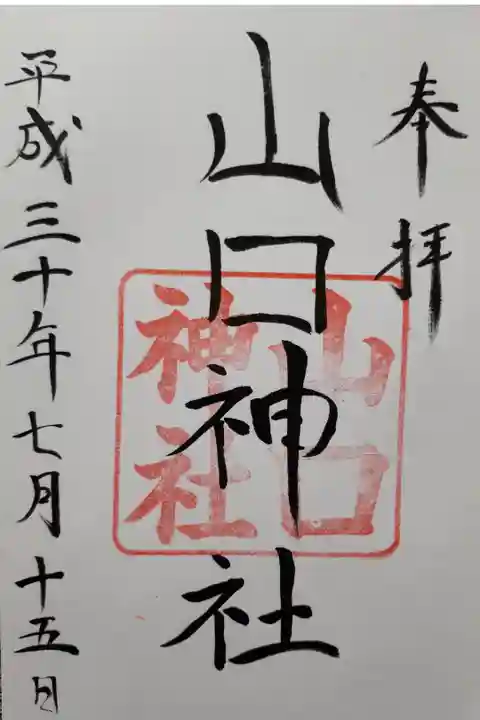 奉拝
山口神社
山口
神社
平成三十年七月十五日